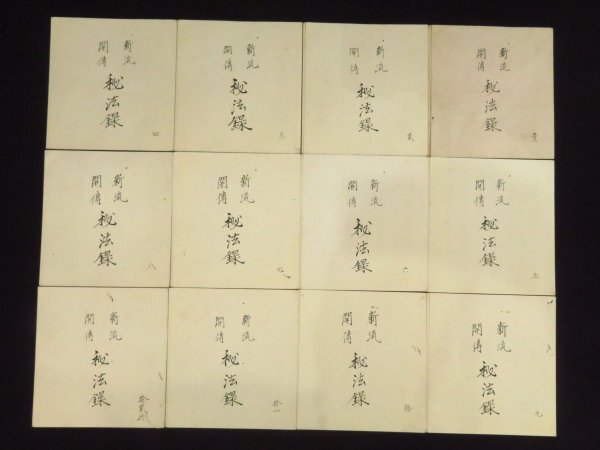 新流
開傳
秘法録
壹
新流
開傳
秘法録
貳
新流
開傳
秘法録
叁
新流
開傳
秘法録
四
新流
開傳
秘法録
五
新流
開傳
秘法録
六
新流
開傳
秘法録
七
新流
開傳
秘法録
八
新流
開傳
秘法録
九
新流
開傳
秘法録
拾
新流
開傳
秘法録
拾一
新流
開傳
秘法録
拾貳